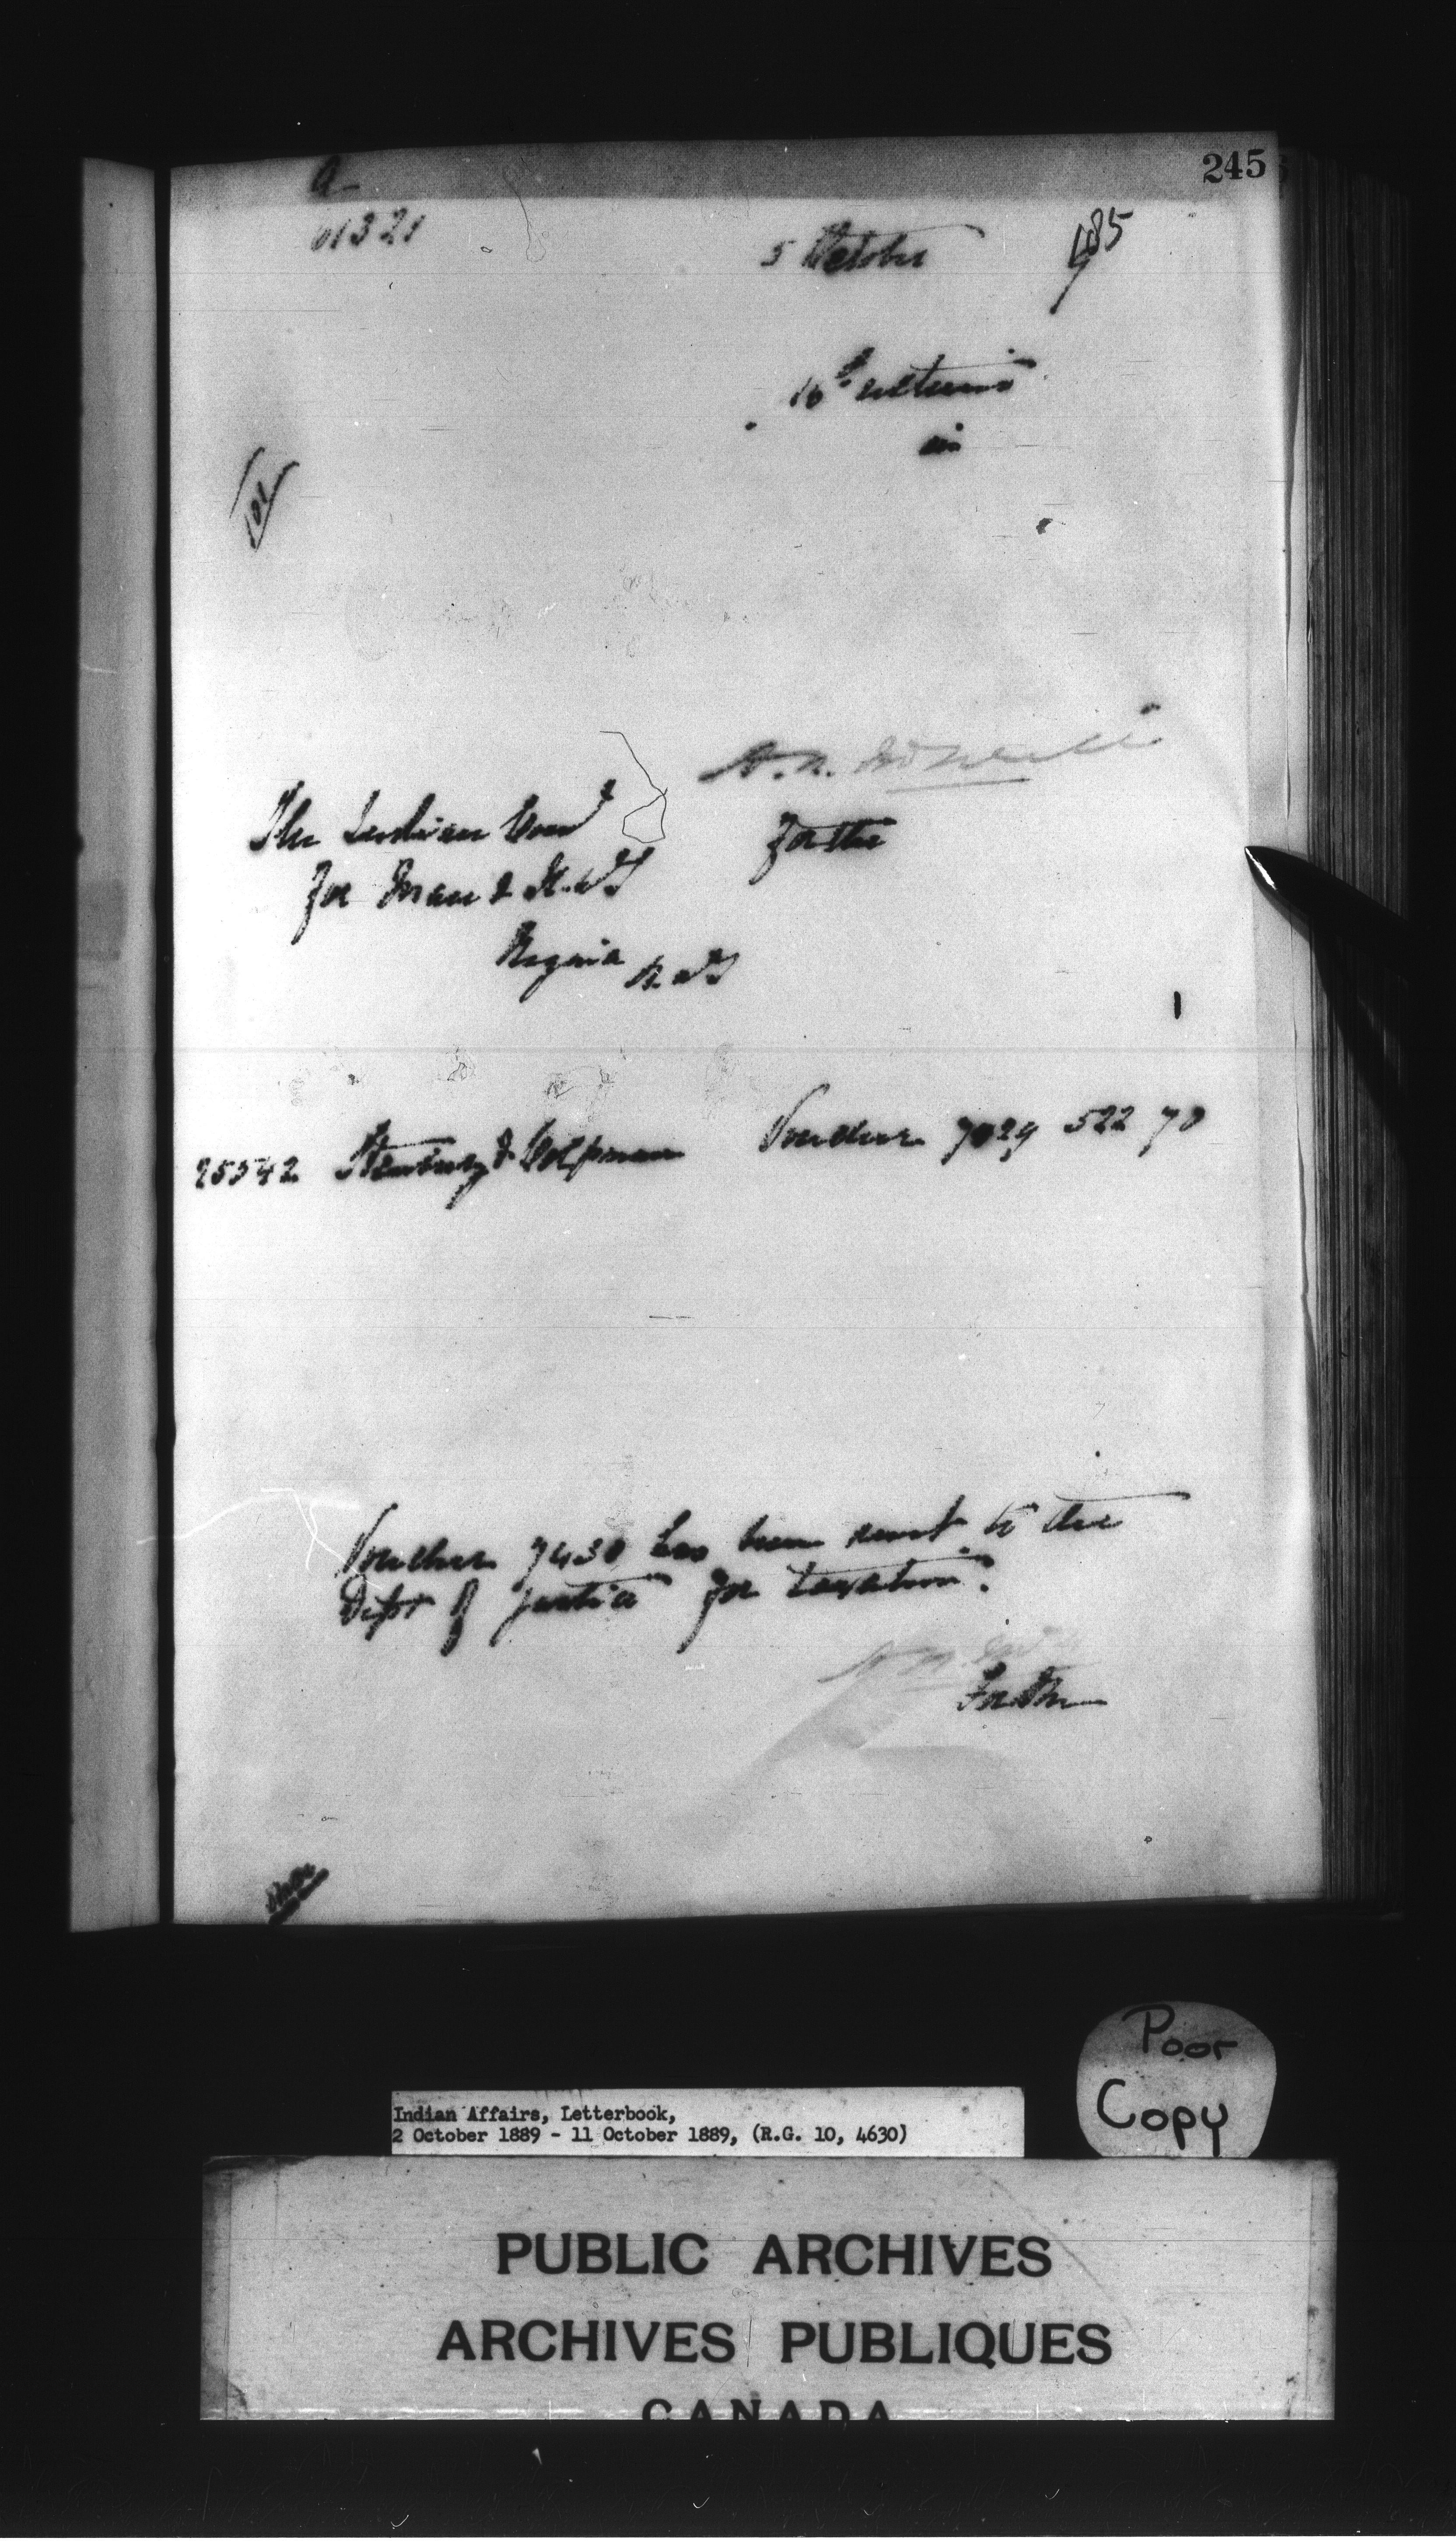 245
a
61321
5 October
16th ultimo
in
The Indian Comr
For Man & N.W.T
Regina N.W.T
For the
25542 & Voucher 7029 522 70
Voucher 7430 has been sent to the
Dept of Justice for taxation.
For the
Poor
Copy
Indian Affairs, Letterbook,
2 October 1889 - 11 October 1889, (R.G. 10, 4630)
PUBLIC ARCHIVES
ARCHIVES PUBLIQUES
CANADA